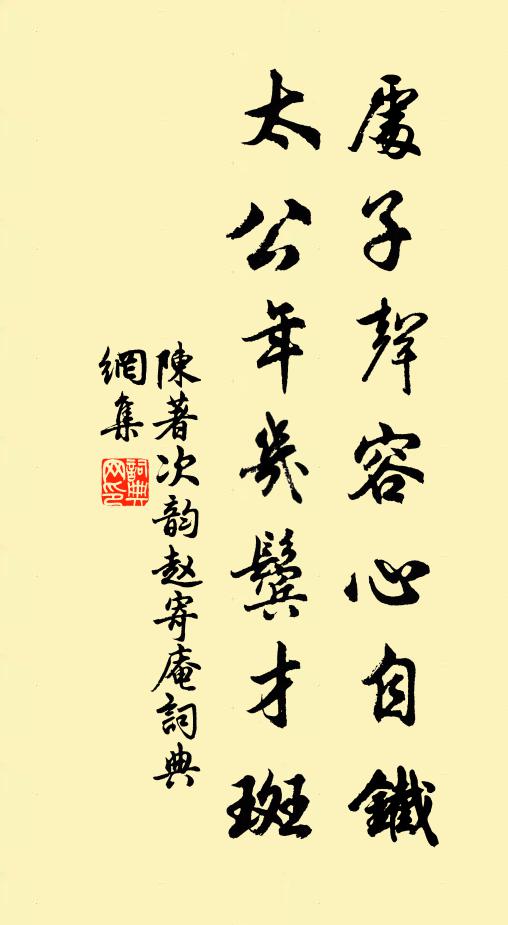 處子聲容心自鐵
太公年幾鬢才斑
陳著次韵赵寄庵詞典
網集
詞典網印